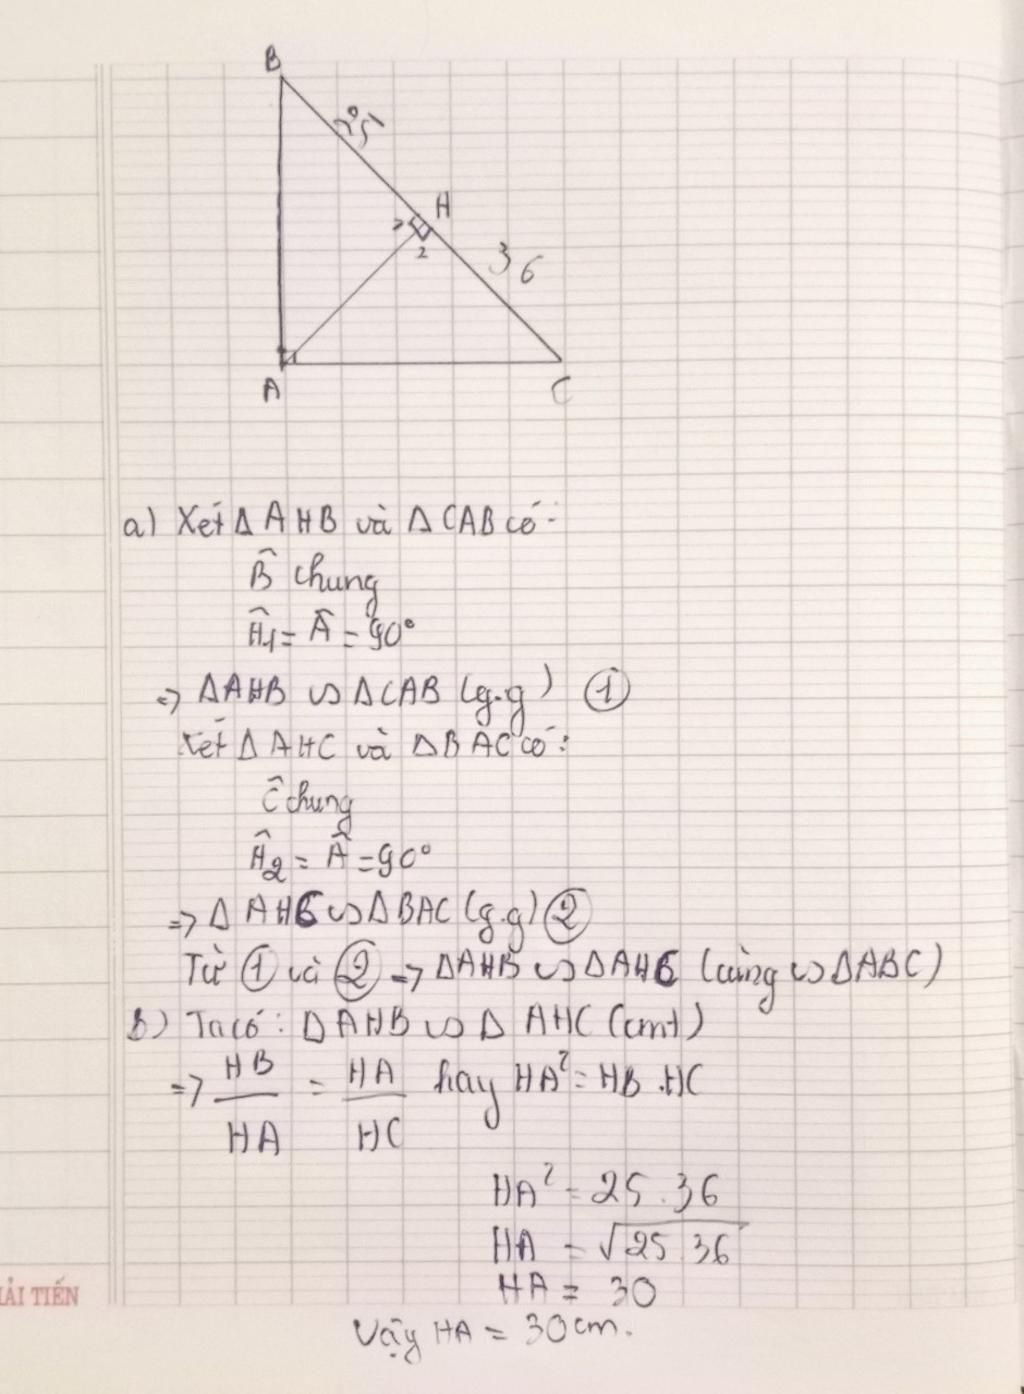 B
25
H
1
2
36
A
1
C
a) Xét Δ AHB và Δ CAB có:
B̂ chung
Ĥ1 = Â = 90°
=> ΔAHB ∽ ΔCAB (g.g) ①
Xét Δ AHC và ΔBAC có:
Ĉ chung
Ĥ2 = Â = 90°
=> Δ AHC ∽ ΔBAC (g.g) ②
Từ ① và ② => ΔAHB ∽ ΔAHC (cùng ∽ ΔABC)
b) Ta có: ΔAHB ∽ Δ AHC (cmt)
=> HB/HA = HA/HC hay HA² = HB.HC
HA² = 25.36
HA = √25.36
HA = 30
Vậy HA = 30cm.
ẢI TIẾN